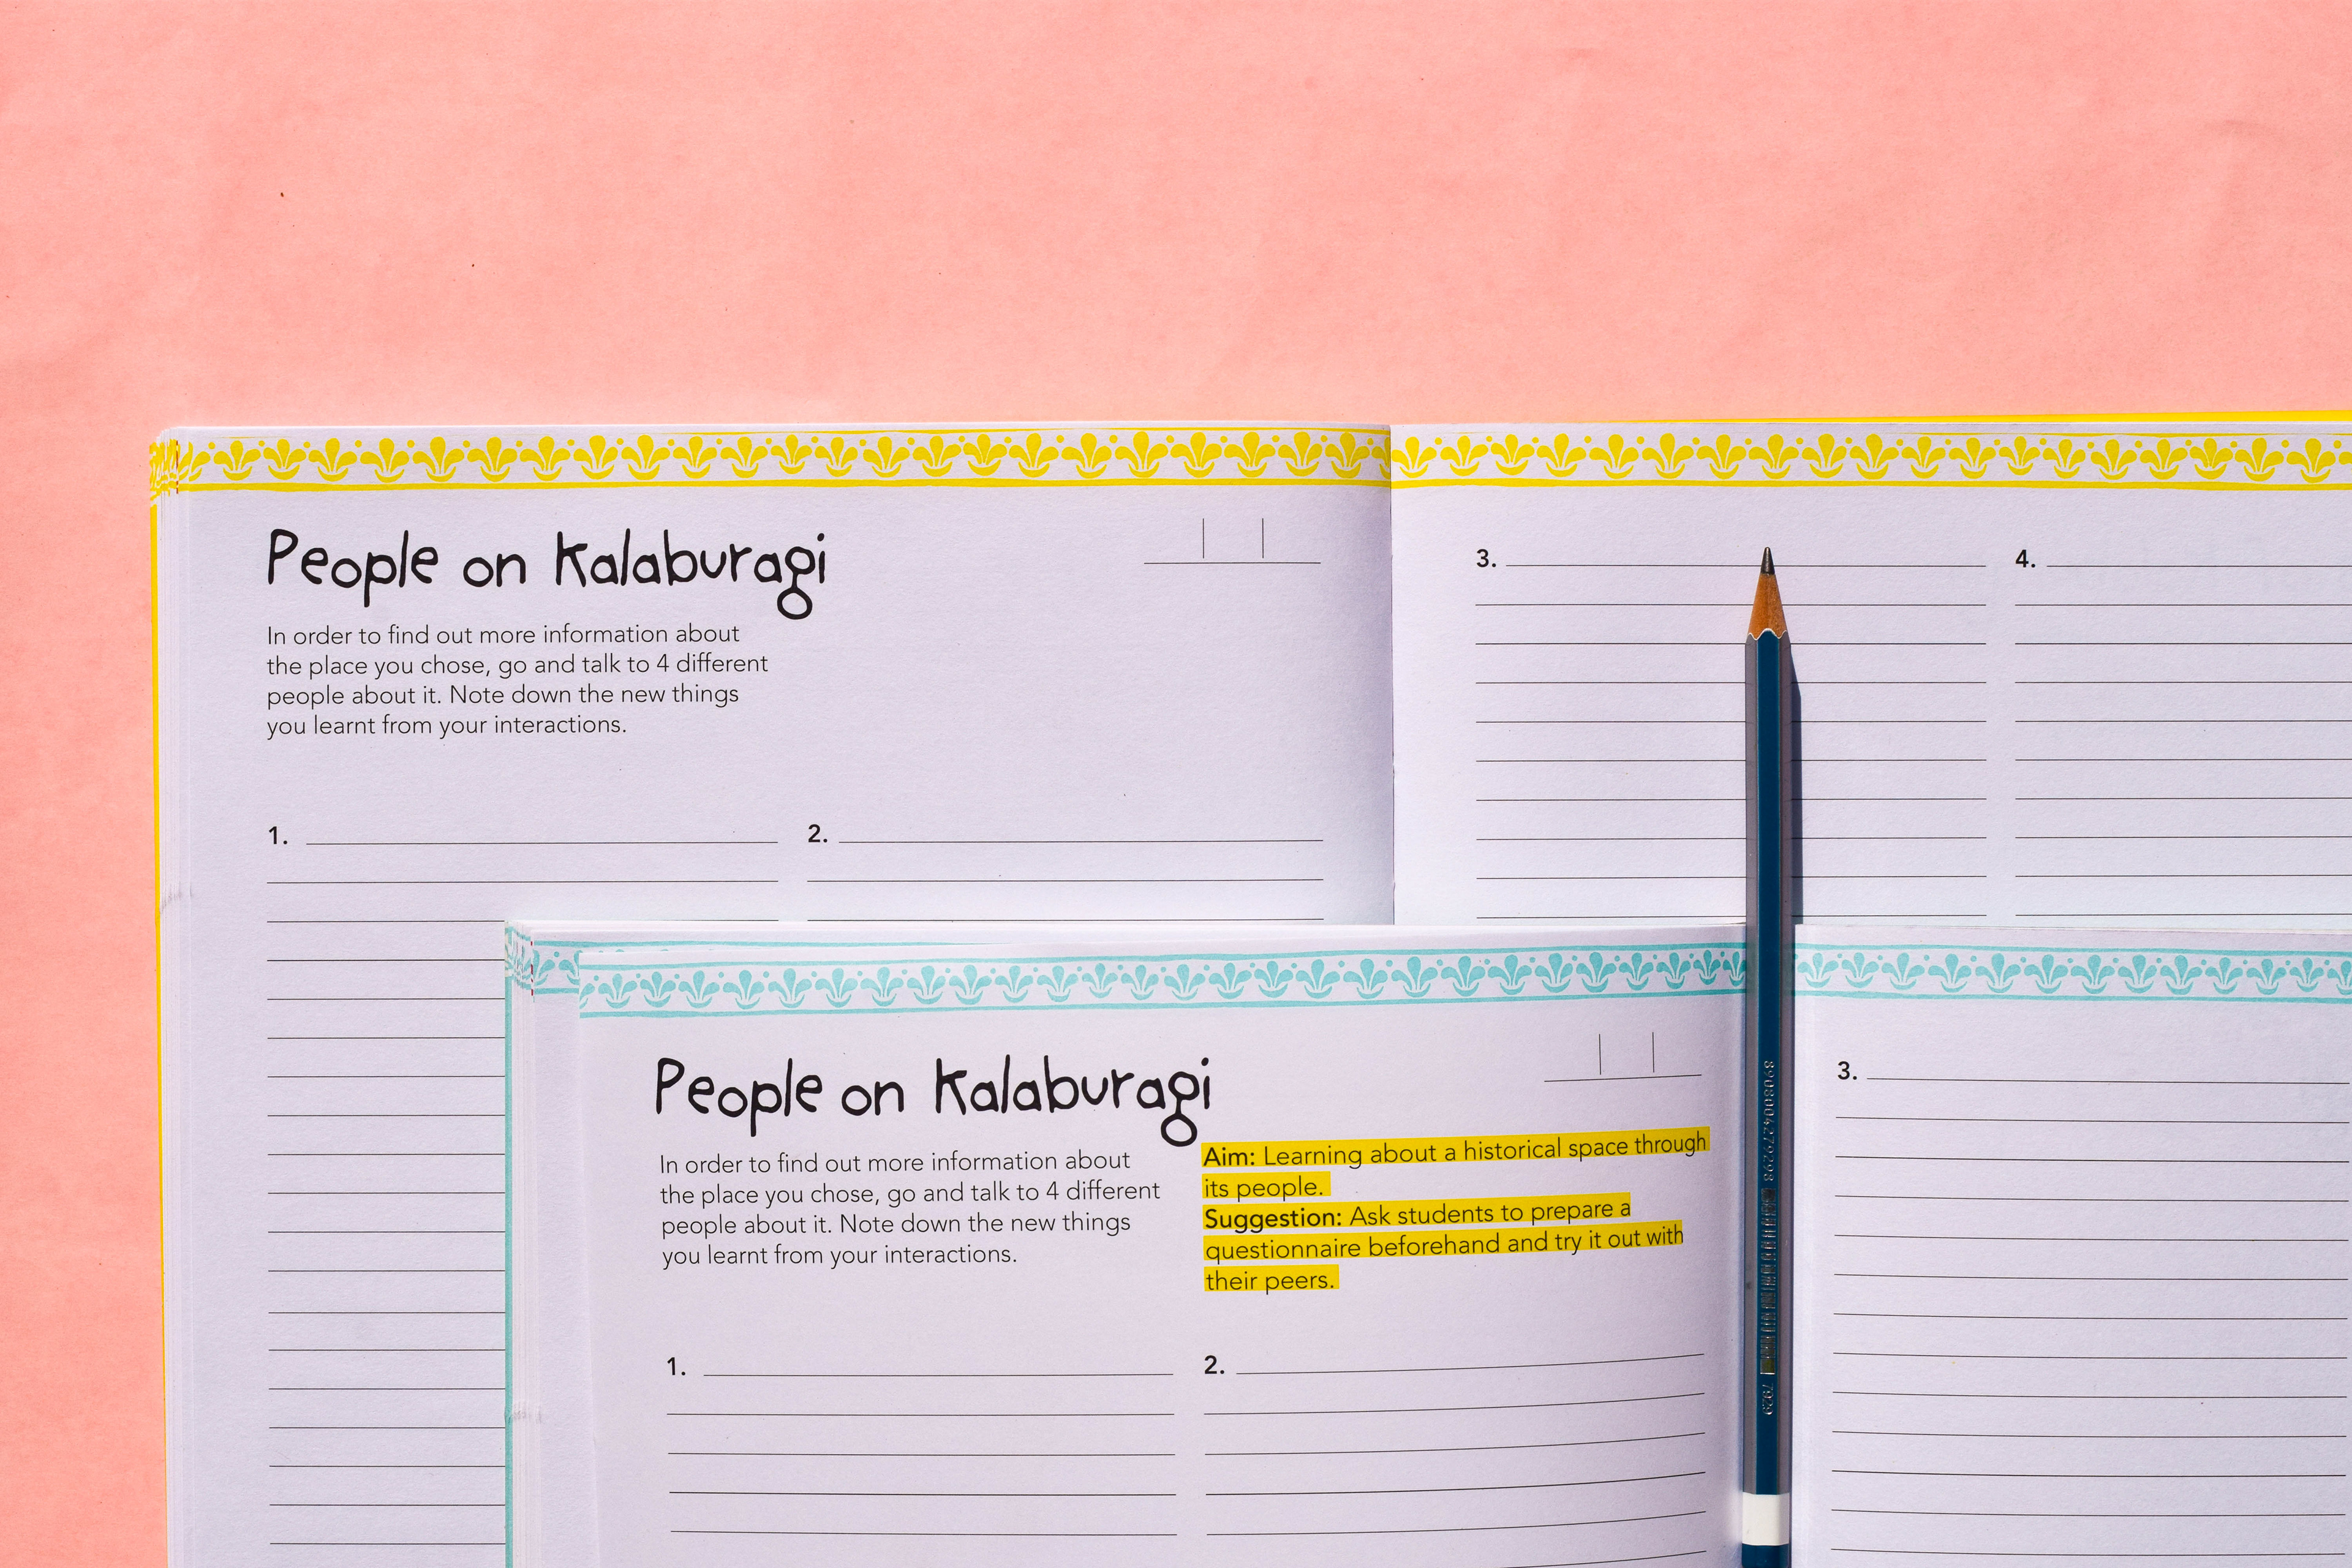 People on Kalaburagi
In order to find out more information about
the place you chose, go and talk to 4 different
people about it. Note down the new things
you learnt from your interactions.
1.
2.
3.
4.
People on Kalaburagi
In order to find out more information about
the place you chose, go and talk to 4 different
people about it. Note down the new things
you learnt from your interactions.
Aim: Learning about a historical space through
its people.
Suggestion: Ask students to prepare a
questionnaire beforehand and try it out with
their peers.
1.
2.
3.
7929